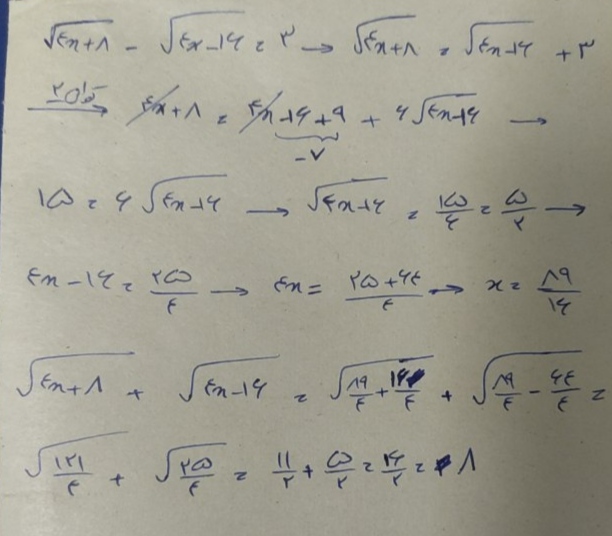 √(۴x+۸) - √(۴x-۱۶) = ۳ → √(۴x+۸) = √(۴x-۱۶) + ۳
توان۲ → ۴x+۸ = ۴x-۱۶+۹ + ۶√(۴x-۱۶) →
-۷
۱۵ = ۶√(۴x-۱۶) → √(۴x-۱۶) = ۱۵/۶ = ۵/۲ →
۴x-۱۶ = ۲۵/۴ → ۴x = (۲۵+۶۴)/۴ → x = ۸۹/۱۶
√(۴x+۸) + √(۴x-۱۶) = √(۸۹/۴ + /۴) + √(۸۹/۴ - ۶۴/۴) =
√(۱۲۱/۴) + √(۲۵/۴) = ۱۱/۲ + ۵/۲ = ۱۶/۲ = ۸